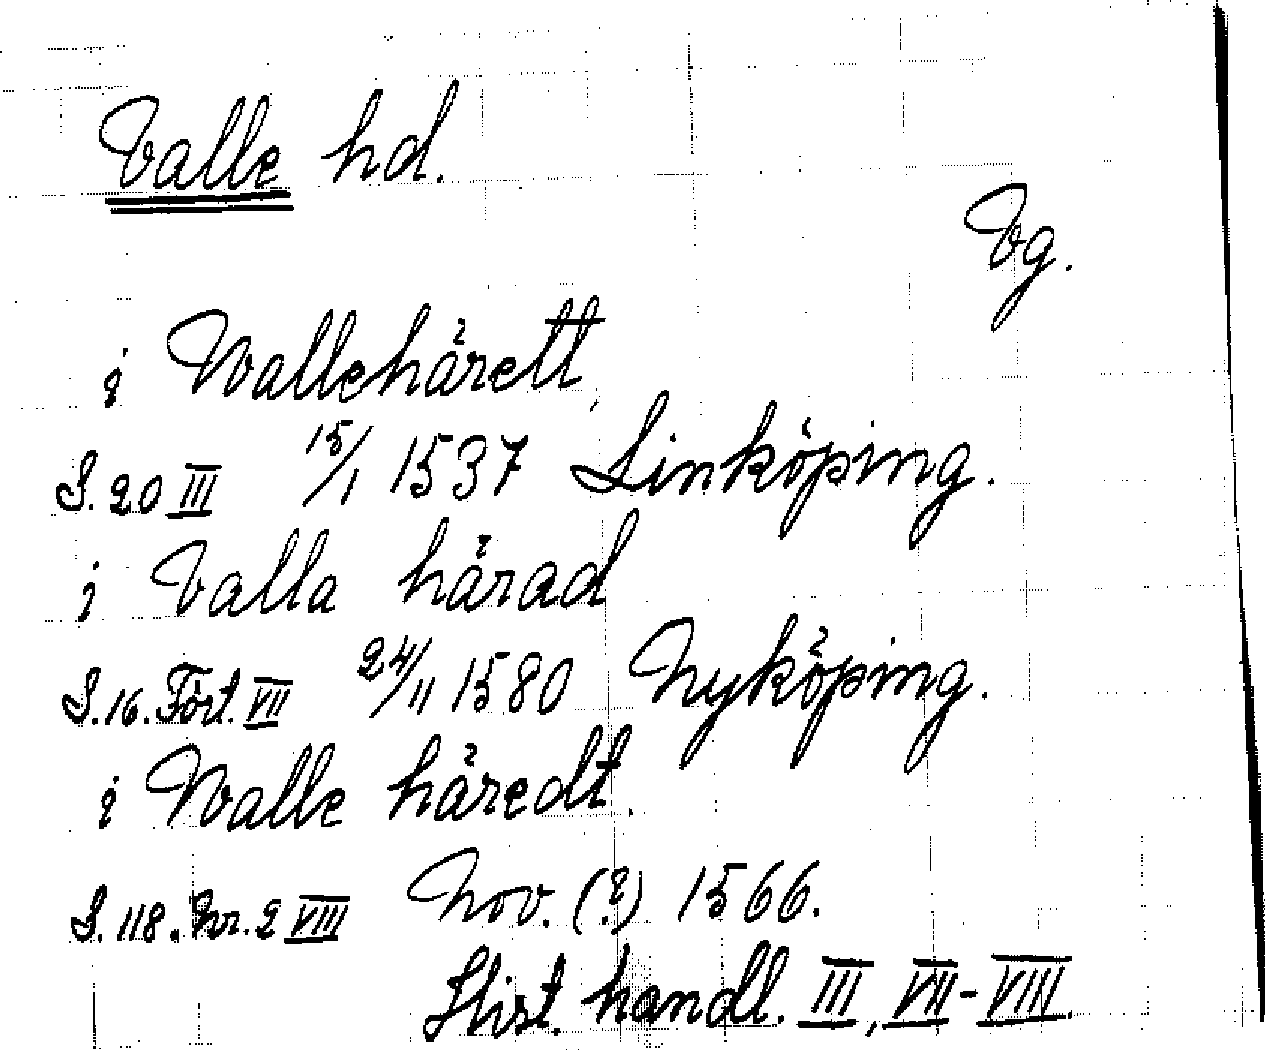 Valle hd.
Vg.
i Wallehärett,
S. 20 III 15/1 1537 Linköping.
i Valla härad
S. 16. Fört. VII 24/11 1580 Nyköping.
i Walle häredt.
S. 118. Nr. 2 VIII Nov. (?) 1566.
Hist. handl. III, VII-VIII.